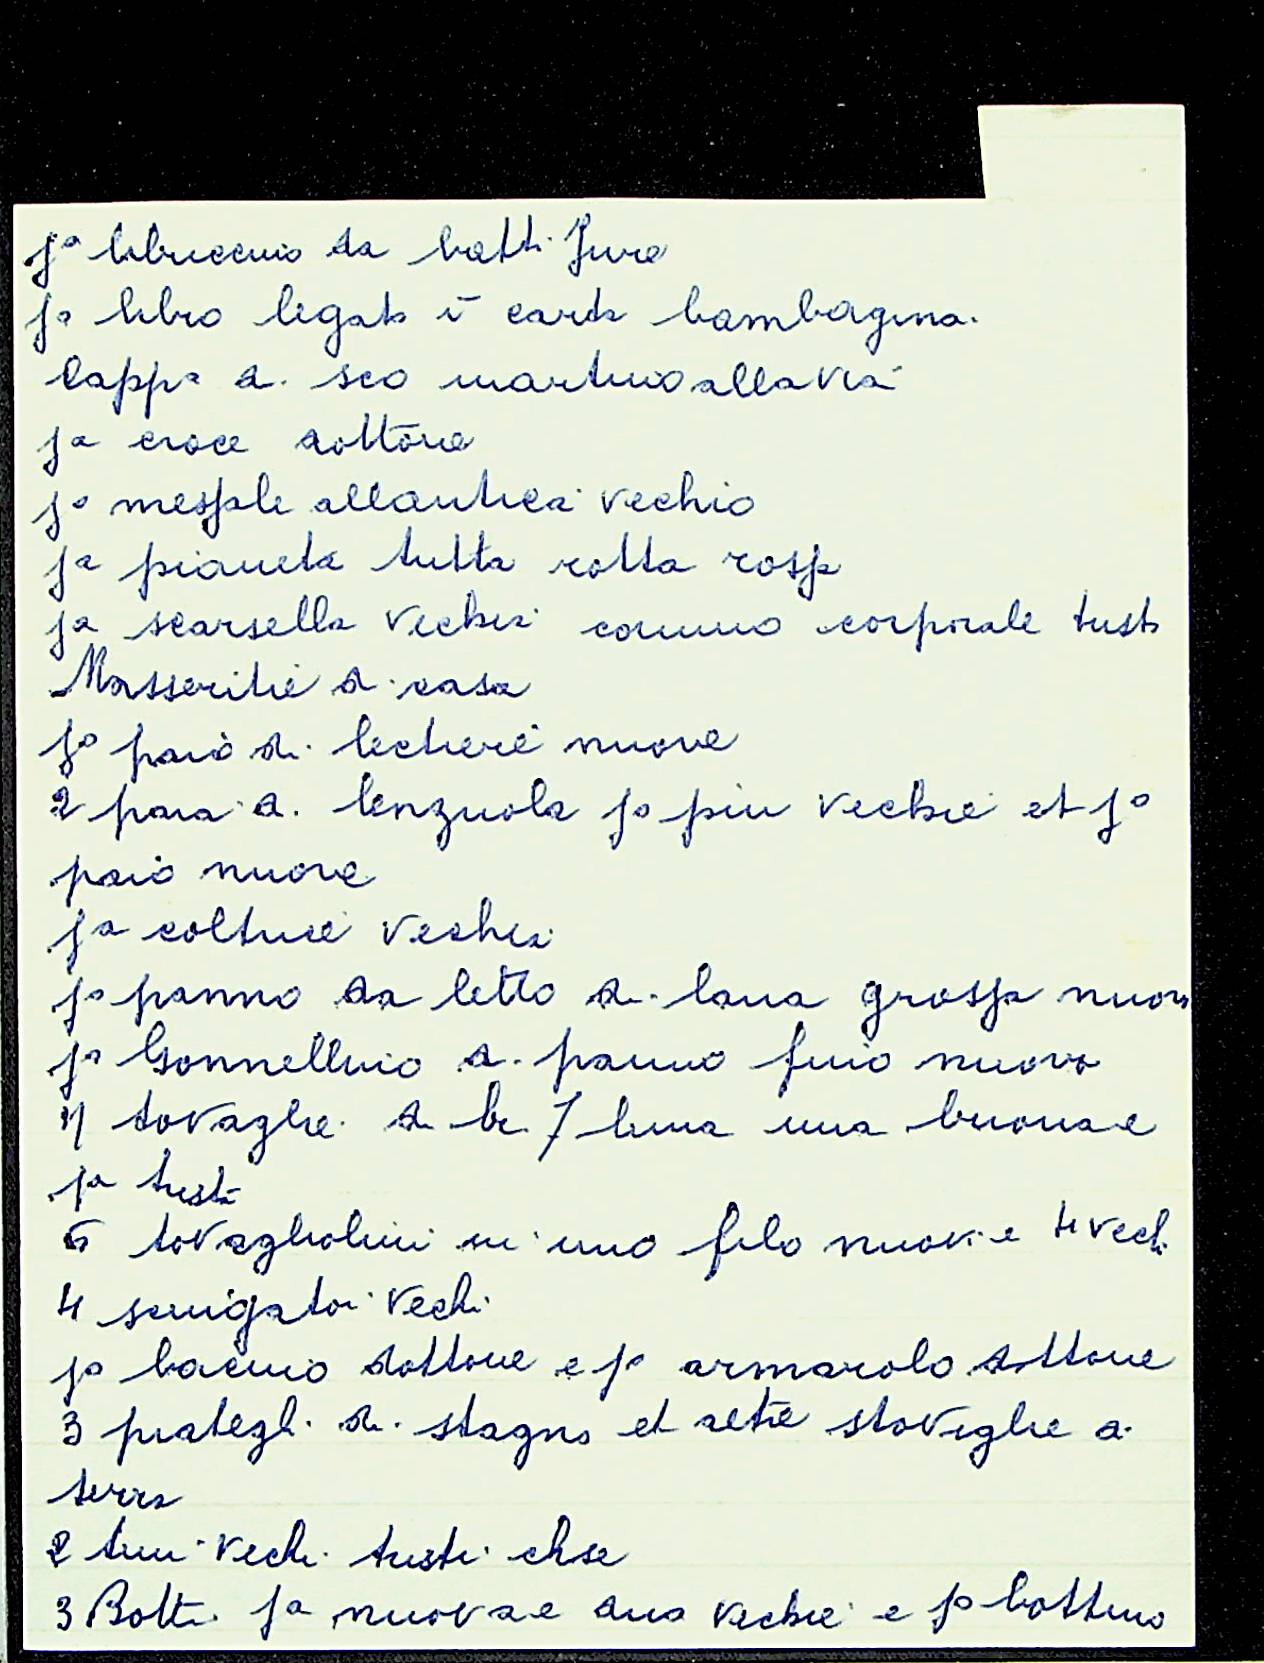 jº libriccino da batti Jure
jº libro legato ī carta bambagina.
Capp.ª di sco martino allavia
jª croce dottōne
jº messale allantica vechio
jª pianeta tutta rotta rossa
jª scarsella vechia con uno corporale tristo
Masseritie di casa
jº paio di lechiere nuove
2 paia di lenzuola jº piu vechie et jº
paio nuove
jª coltrice vechia
jº panno da letto di lana grossa nuovo
jº Gonnellino di panno fino nuovo
ij tovaglie di br. 7 luna una buona e
jª trista
6 tovagliolini in uno filo nuovi e 4 vechi
4 sciugatoi vechi
jº bacino dottone e jº dottone
3 piategli di stagno et altre stoviglie di
terra
2 tini vechi tristi chse
3 Botti jª nuova e dua vechie e jº bottino